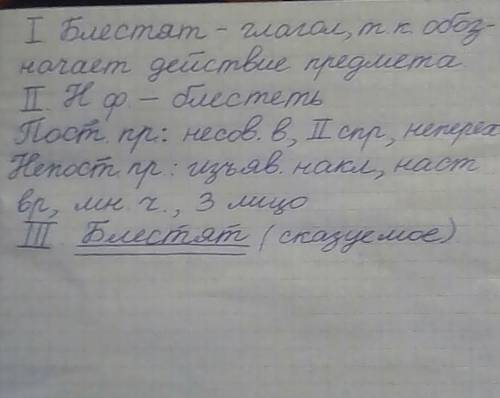 I Блестят - глагол, т.к. обоз-
начает действие предмета
II. Н ф. - блестеть
Пост. пр: несов. в, II спр, неперех
Непост. пр.: изъяв. накл, наст
вр, мн. ч., 3 лицо
III Блестят (сказуемое)